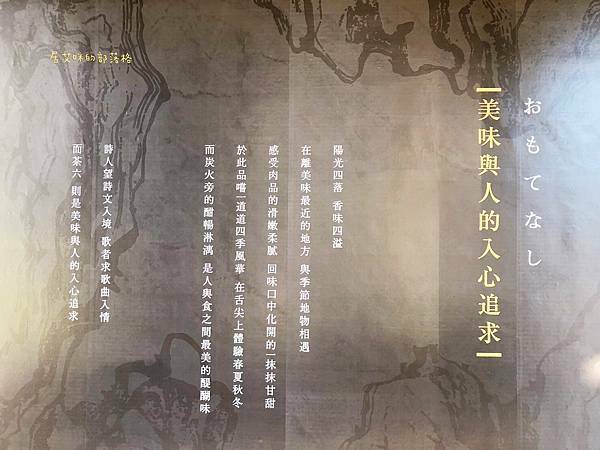 おもてなし
美味與人的入心追求
陽光四落 香味四溢
在離美味最近的地方 與季節地物相遇
感受肉品的滑嫩柔膩 回味口中化開的一抹抹甘甜
於此品嚐一道道四季風華 在舌尖上體驗春夏秋冬
而炭火旁的酣暢淋漓 是人與食之間最美的醍醐味
詩人望詩文入境 歌者求歌曲入情
而茶六 則是美味與人的入心追求
居艾咪的部落格